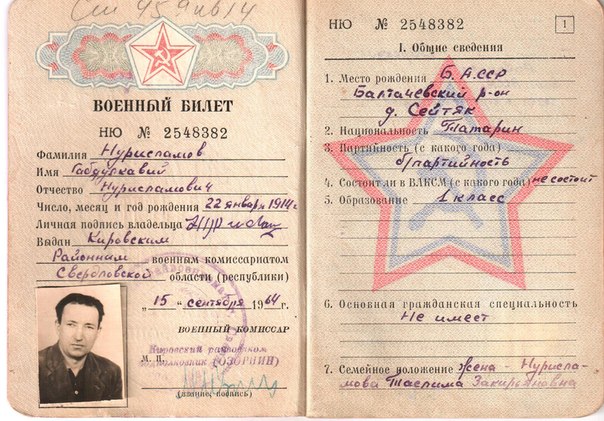 ВОЕННЫЙ БИЛЕТ
НЮ № 2548382
Фамилия Нурисламов
Имя Габдулхавий
Отчество Нурисламович
Число, месяц и год рождения 22 января 1914 г.
Личная подпись владельца
Выдан Кировским
Районным военным комиссариатом
Свердловской области (республики)
„15" сентября 1964 г.
ВОЕННЫЙ КОМИССАР
Кировский райвоенком
подполковник (ОЗОРНИН)
М. П.
(звание, подпись)
НЮ № 2548382
1
I. Общие сведения
1. Место рождения Б. АССР
Балтачевский р-он
д. Сейтяк
2. Национальность Татарин
3. Партийность (с какого года)
б/партийность
4. Состоит ли в ВЛКСМ (с какого года) не состоит
5. Образование 1 класс
6. Основная гражданская специальность
Не имеет
7. Семейное положение жена - Нурисла-
мова Таслима Закирьяновна